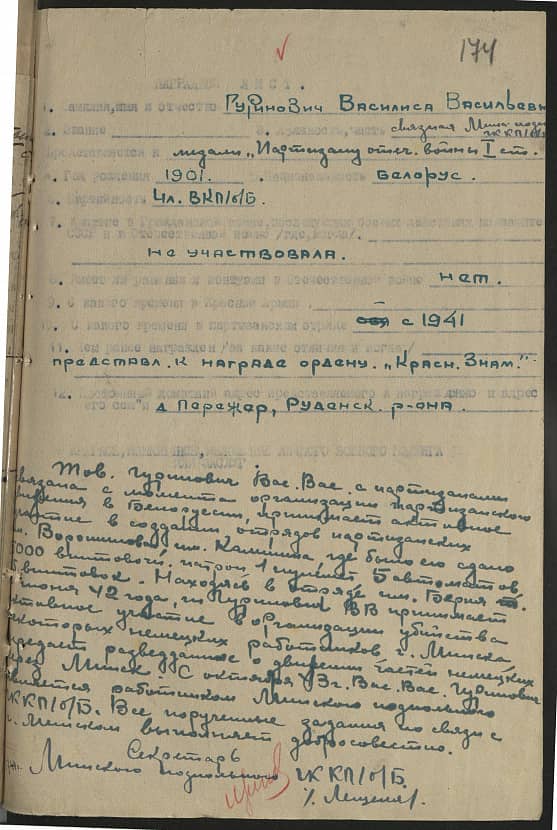 174
НАГРАДНОЙ ЛИСТ.
1. Фамилия,имя и отчество Гуринович Василиса Васильевн
2. Звание 3. Должность,часть связная Минс. подп.
ГК КП/б/Б
Представляется к медали „Партизану отеч. войны I ст.
4. Год рождения 1901. 5. Национальность Белорус.
6. Партийность Чл. ВКП/б/Б.
7. Участие в Гражданской войне, последующих боевых действиях по защите
СССР и в Отечественной войне /где,когда/.
НЕ УЧАСТВОВАЛА.
8. Имеет ли ранения и контузии в Отечественной войне нет.
9. С какого времени в Красной Армии -
10. С какого времени в партизанском отряде с 1941
11. Чем ранее награжден /за какие отличия и когда/
представл. к награде ордену. „Красн. Знам."
12. Постоянный домашний адрес представляемого к награждению и адрес
его семьи д Пережар, Руденск. р-она.
КРАТКОЕ,КОНКРЕТНОЕ ИЗЛОЖЕНИЕ ЛИЧНОГО БОЕВОГО ПОДВИГА
Тов. Гуринович Вас. Вас. с партизанами
связана с момента организации партизанского
движения в Белоруссии, принимает активное
участие в создании отрядов партизанских
им. Ворошилова, им. Калинина где было ею сдано
5000 винтовоч. патрон, 1 пулемет 5 автоматов
винтовок. Находясь в отряде им. Берия
июня 42 года, гн Гуринович ВВ принимает
активное участие в организации убийства
некоторых немецких работников г. Минска
передает разведданные о движении частей немецких
через Минск. С октября 43 г. Вас. Вас. Гуринович
является работником Минского подпольного
ГК КП/б/Б. Все порученные задания по связи с
г. Минском выполняет добросовестно.
Секретарь
Минского подпольного ГК КП/б/Б.